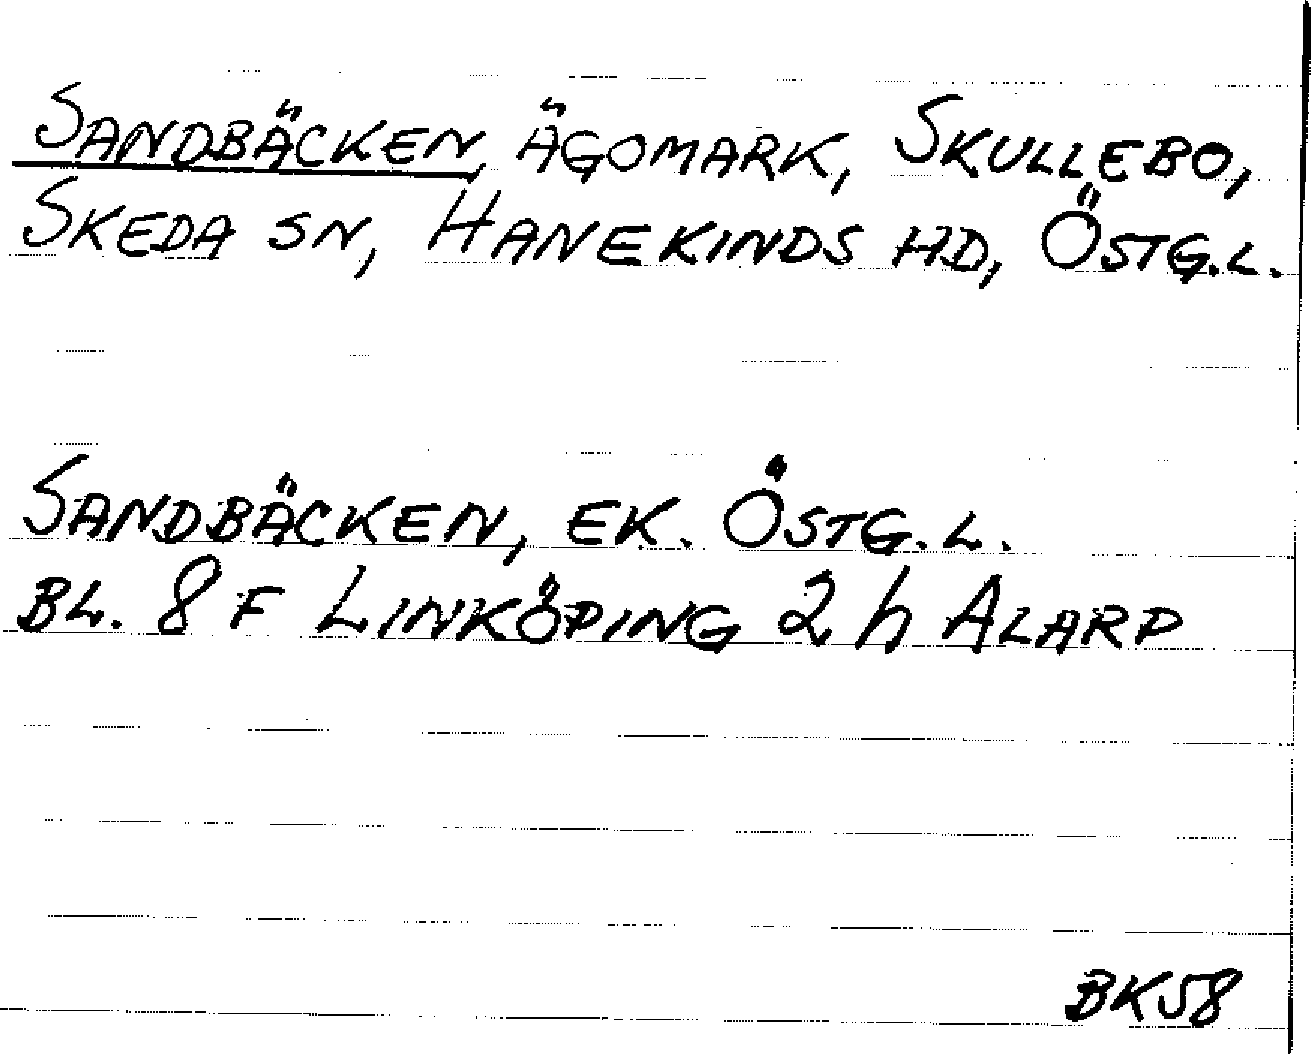 SANDBÄCKEN, ÄGOMARK, SKULLEBO,
SKEDA SN, HANEKINDS HD, ÖSTG.L.
SANDBÄCKEN, EK. ÖSTG.L.
BL. 8 F LINKÖPING 2 h ALARP
BK58